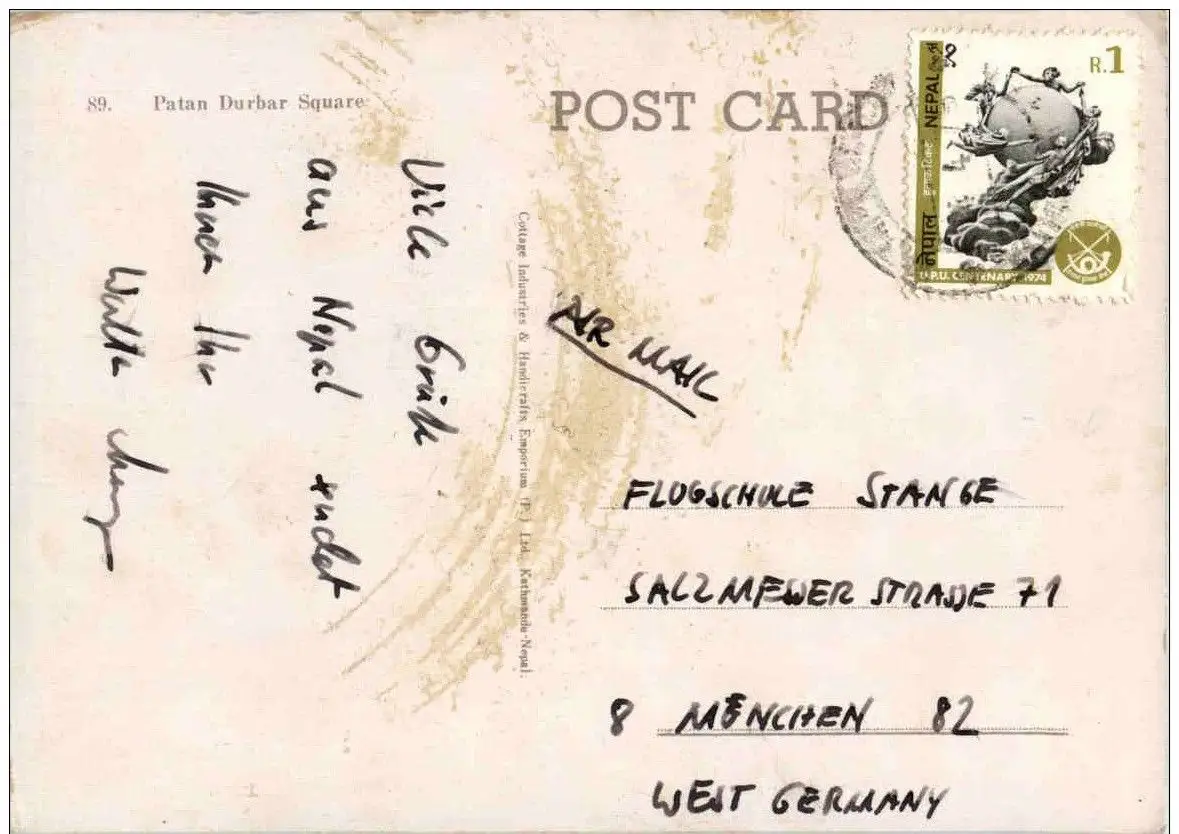 89. Patan Durbar Square
POST CARD
R.1
नेपाल NEPAL
U.P.U. CENTENARY 1974
Viele Grüße
aus Nepal sendet
Ihnen Ihr
Walter
Cottage Industries & Handicrafts Emporium (P.) Ltd., Kathmandu-Nepal.
AIR MAIL
FLUGSCHULE STANGE
SALZMEWER STRASSE 71
8 MÜNCHEN 82
WEST GERMANY